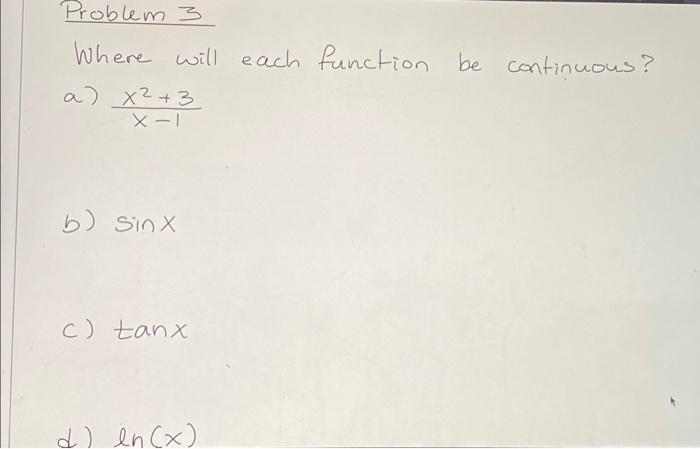 Problem 3
Where will each function be continuous?
a) x² + 3
x - 1
b) sinx
c) tanx
d) ln(x)